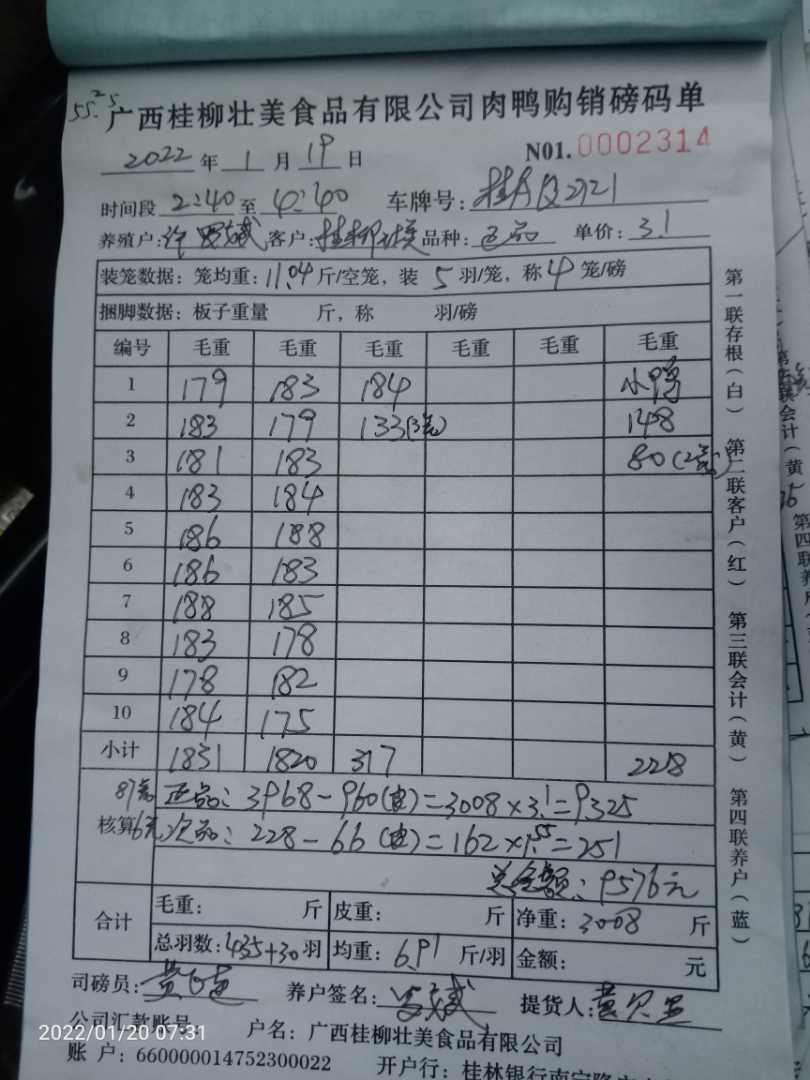 55.25
广西桂柳壮美食品有限公司肉鸭购销磅码单
2022 年 1 月 19 日 N01.0002314
时间段 2:40 至 4:40 车牌号:
养殖户: 客户: 品种:正品 单价:3.1
装笼数据:笼均重:11.04斤/空笼,装 5 羽/笼,称4 笼/磅
捆脚数据:板子重量 斤,称 羽/磅
编号 毛重 毛重 毛重 毛重 毛重 毛重
1 179 183 184 小鸭
2 183 179 133(3笼) 148
3 181 183 80(2笼)
4 183 184
5 186 188
6 186 183
7 188 185
8 183 178
9 178 182
10 184 175
小计 1831 1820 317 228
87笼 正品:3968-960(皮)=3008×3.1=9325
核算 6笼 次品:228-66(皮)=162×1.55=251
总金额:9576元
合计 毛重: 斤 皮重: 斤 净重:3008 斤
总羽数:435+30羽 均重:6.91 斤/羽 金额: 元
司磅员: 养户签名: 提货人:
公司汇款账号 户名:广西桂柳壮美食品有限公司
账 户:660000014752300022 开户行:桂林银行南宁
第一联存根(白) 第二联客户(红) 第三联会计(黄) 第四联养户(蓝)
2022/01/20 07:31